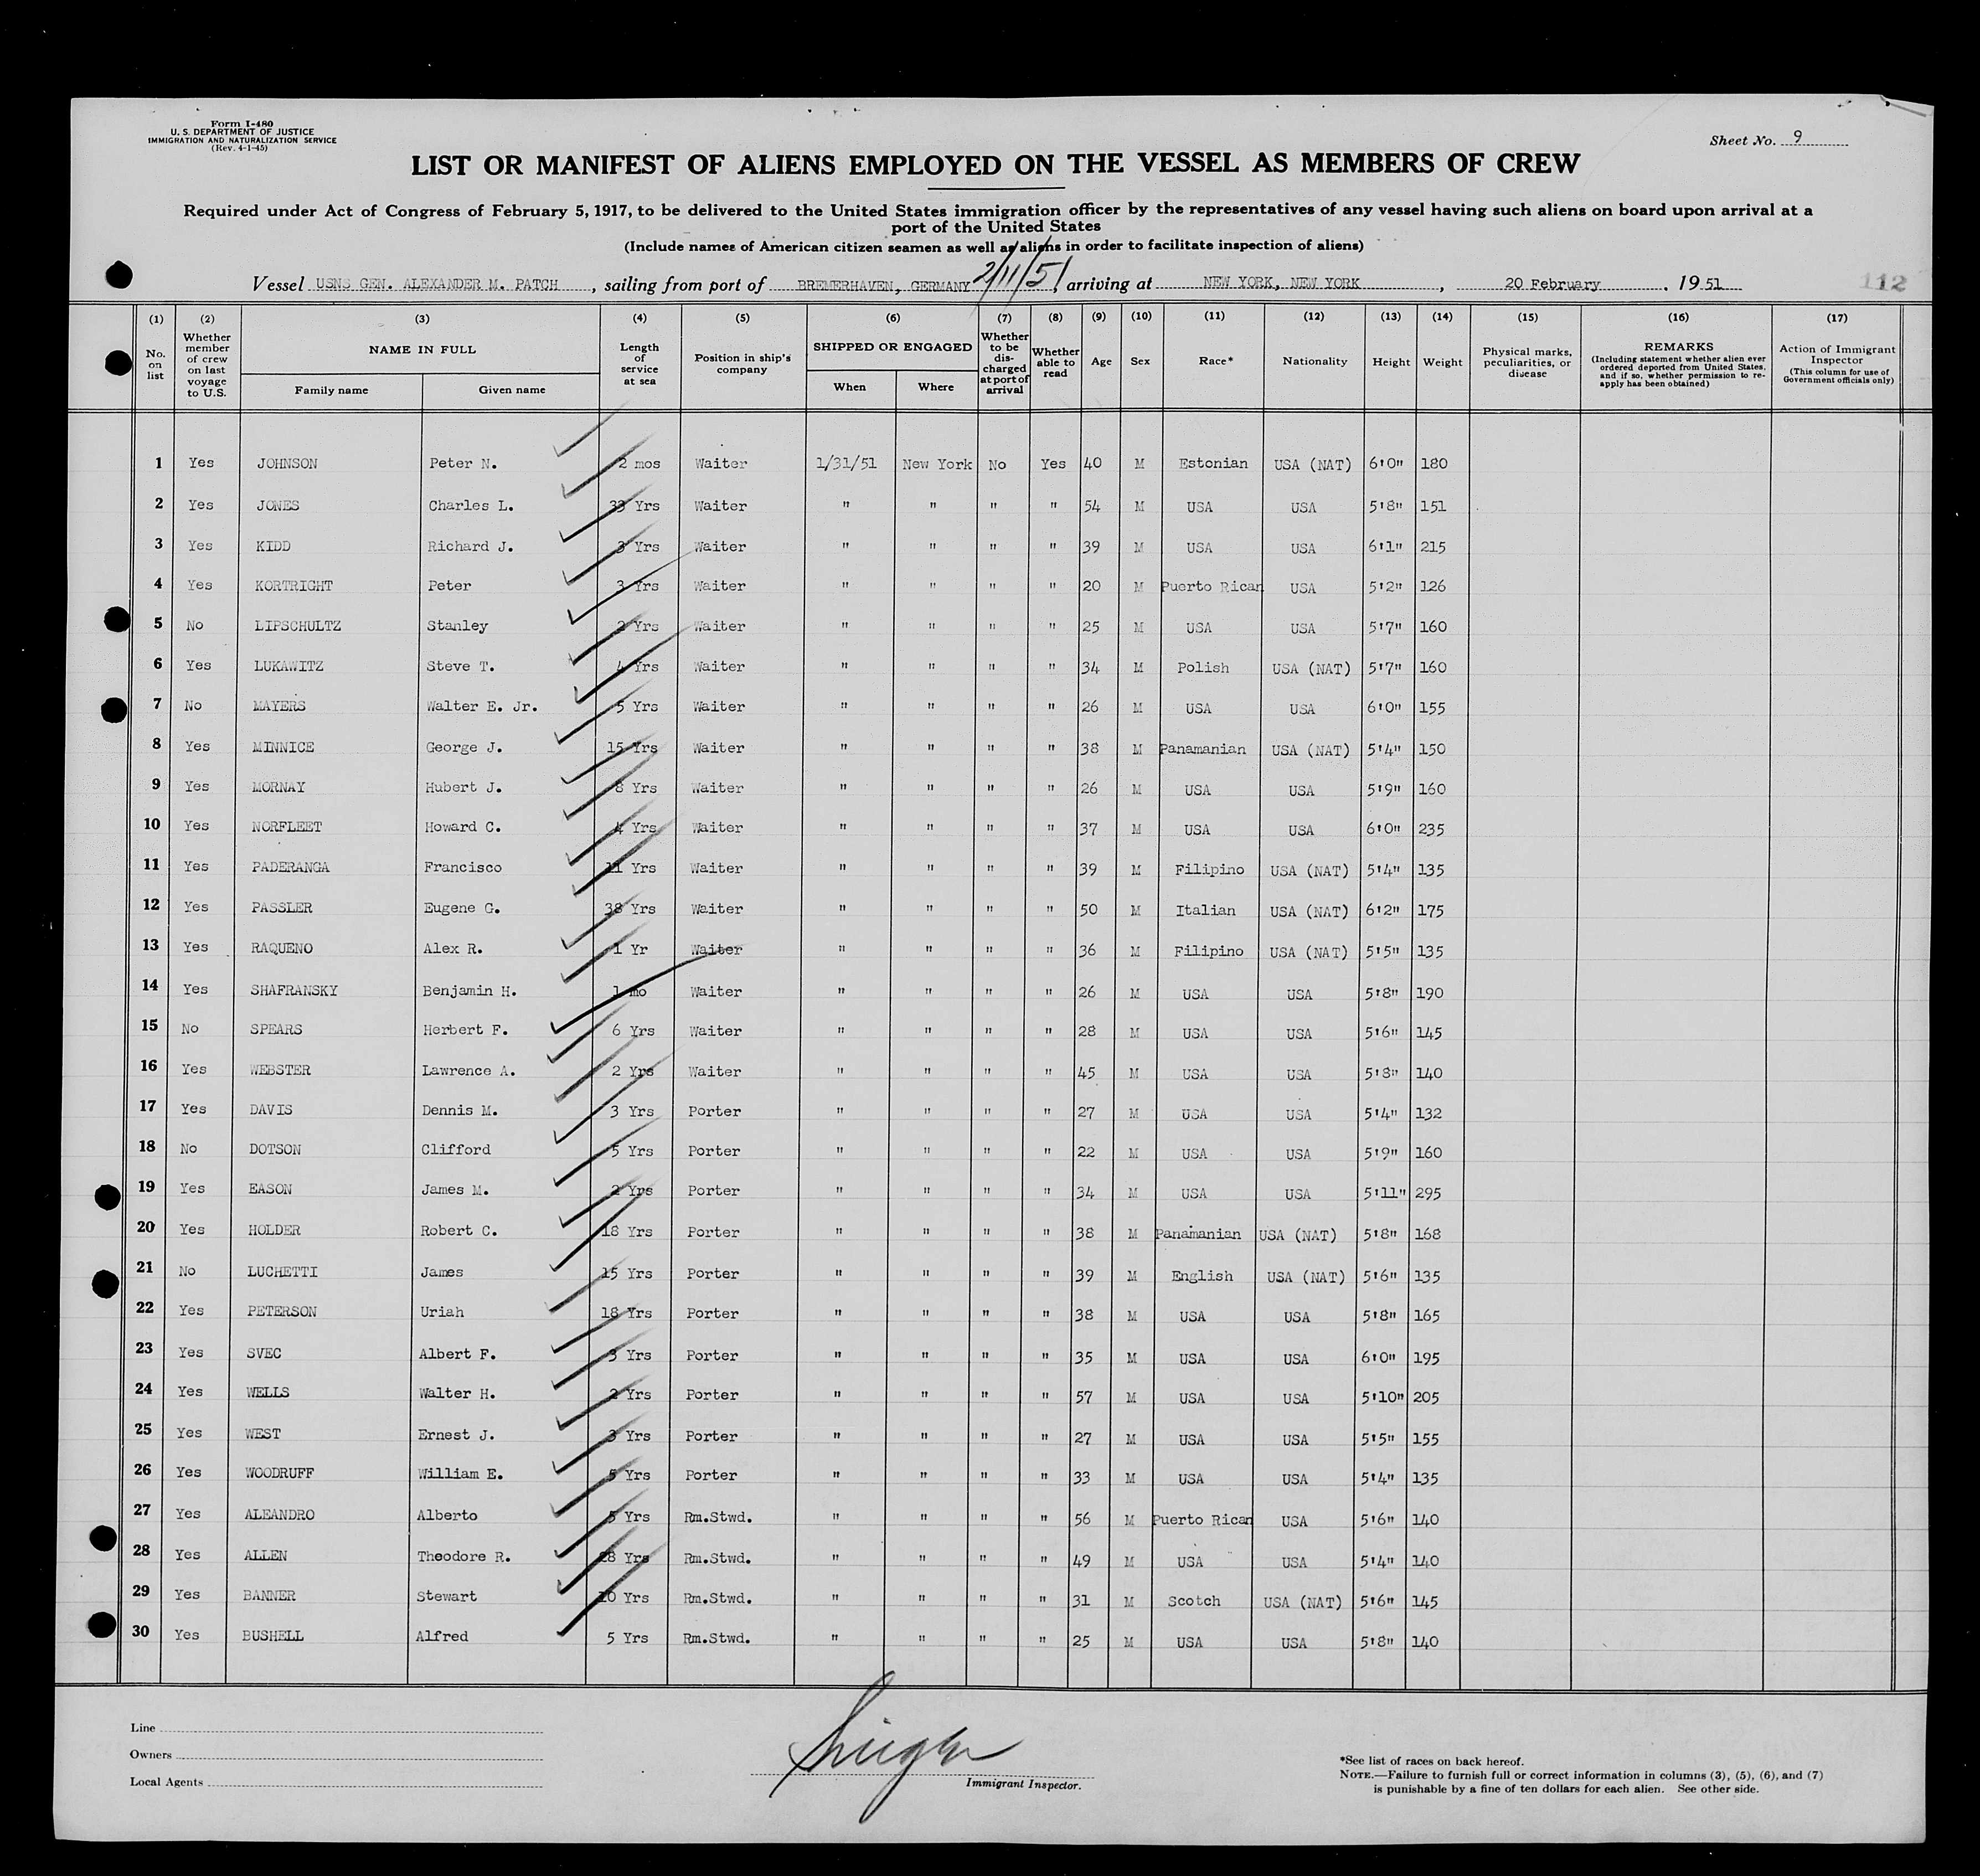 Form I-480
U. S. DEPARTMENT OF JUSTICE
IMMIGRATION AND NATURALIZATION SERVICE
(Rev. 4-1-45)
Sheet No. 9
LIST OR MANIFEST OF ALIENS EMPLOYED ON THE VESSEL AS MEMBERS OF CREW
Required under Act of Congress of February 5, 1917, to be delivered to the United States immigration officer by the representatives of any vessel having such aliens on board upon arrival at a
port of the United States
(Include names of American citizen seamen as well as aliens in order to facilitate inspection of aliens)
Vessel USNS GEN. ALEXANDER M. PATCH, sailing from port of BREMERHAVEN, GERMANY 2/11/51, arriving at NEW YORK, NEW YORK, 20 February, 1951 112
(1) (2) (3) (4) (5) (6) (7) (8) (9) (10) (11) (12) (13) (14) (15) (16) (17)
No. on list Whether member of crew on last voyage to U.S. NAME IN FULL Family name Given name Length of service at sea Position in ship's company SHIPPED OR ENGAGED When Where Whether to be discharged at port of arrival Whether able to read Age Sex Race* Nationality Height Weight Physical marks, peculiarities, or disease REMARKS (Including statement whether alien ever ordered deported from United States, and if so, whether permission to re-apply has been obtained) Action of Immigrant Inspector (This column for use of Government officials only)
1 Yes JOHNSON Peter N. 2 mos Waiter 1/31/51 New York No Yes 40 M Estonian USA (NAT) 6'0" 180
2 Yes JONES Charles L. 33 Yrs Waiter " " " " 54 M USA USA 5'8" 151
3 Yes KIDD Richard J. 3 Yrs Waiter " " " " 39 M USA USA 6'1" 215
4 Yes KORTRIGHT Peter 3 Yrs Waiter " " " " 20 M Puerto Rican USA 5'2" 126
5 No LIPSCHULTZ Stanley 2 Yrs Waiter " " " " 25 M USA USA 5'7" 160
6 Yes LUKAWITZ Steve T. 4 Yrs Waiter " " " " 34 M Polish USA (NAT) 5'7" 160
7 No MAYERS Walter E. Jr. 5 Yrs Waiter " " " " 26 M USA USA 6'0" 155
8 Yes MINNICE George J. 15 Yrs Waiter " " " " 38 M Panamanian USA (NAT) 5'4" 150
9 Yes MORNAY Hubert J. 8 Yrs Waiter " " " " 26 M USA USA 5'9" 160
10 Yes NORFLEET Howard C. 4 Yrs Waiter " " " " 37 M USA USA 6'0" 235
11 Yes PADERANGA Francisco 11 Yrs Waiter " " " " 39 M Filipino USA (NAT) 5'4" 135
12 Yes PASSLER Eugene G. 38 Yrs Waiter " " " " 50 M Italian USA (NAT) 6'2" 175
13 Yes RAQUENO Alex R. 1 Yr Waiter " " " " 36 M Filipino USA (NAT) 5'5" 135
14 Yes SHAFRANSKY Benjamin H. 1 mo Waiter " " " " 26 M USA USA 5'8" 190
15 No SPEARS Herbert F. 6 Yrs Waiter " " " " 28 M USA USA 5'6" 145
16 Yes WEBSTER Lawrence A. 2 Yrs Waiter " " " " 45 M USA USA 5'8" 140
17 Yes DAVIS Dennis M. 3 Yrs Porter " " " " 27 M USA USA 5'4" 132
18 No DOTSON Clifford 5 Yrs Porter " " " " 22 M USA USA 5'9" 160
19 Yes EASON James M. 2 Yrs Porter " " " " 34 M USA USA 5'11" 295
20 Yes HOLDER Robert C. 18 Yrs Porter " " " " 38 M Panamanian USA (NAT) 5'8" 168
21 No LUCHETTI James 15 Yrs Porter " " " " 39 M English USA (NAT) 5'6" 135
22 Yes PETERSON Uriah 18 Yrs Porter " " " " 38 M USA USA 5'8" 165
23 Yes SVEC Albert F. 3 Yrs Porter " " " " 35 M USA USA 6'0" 195
24 Yes WELLS Walter H. 2 Yrs Porter " " " " 57 M USA USA 5'10" 205
25 Yes WEST Ernest J. 3 Yrs Porter " " " " 27 M USA USA 5'5" 155
26 Yes WOODRUFF William E. 5 Yrs Porter " " " " 33 M USA USA 5'4" 135
27 Yes ALEANDRO Alberto 5 Yrs Rm.Stwd. " " " " 56 M Puerto Rican USA 5'6" 140
28 Yes ALLEN Theodore R. 28 Yrs Rm.Stwd. " " " " 49 M USA USA 5'4" 140
29 Yes BANNER Stewart 10 Yrs Rm.Stwd. " " " " 31 M Scotch USA (NAT) 5'6" 145
30 Yes BUSHELL Alfred 5 Yrs Rm.Stwd. " " " " 25 M USA USA 5'8" 140
Line
Owners
Local Agents
Immigrant Inspector.
*See list of races on back hereof.
NOTE.—Failure to furnish full or correct information in columns (3), (5), (6), and (7)
is punishable by a fine of ten dollars for each alien. See other side.